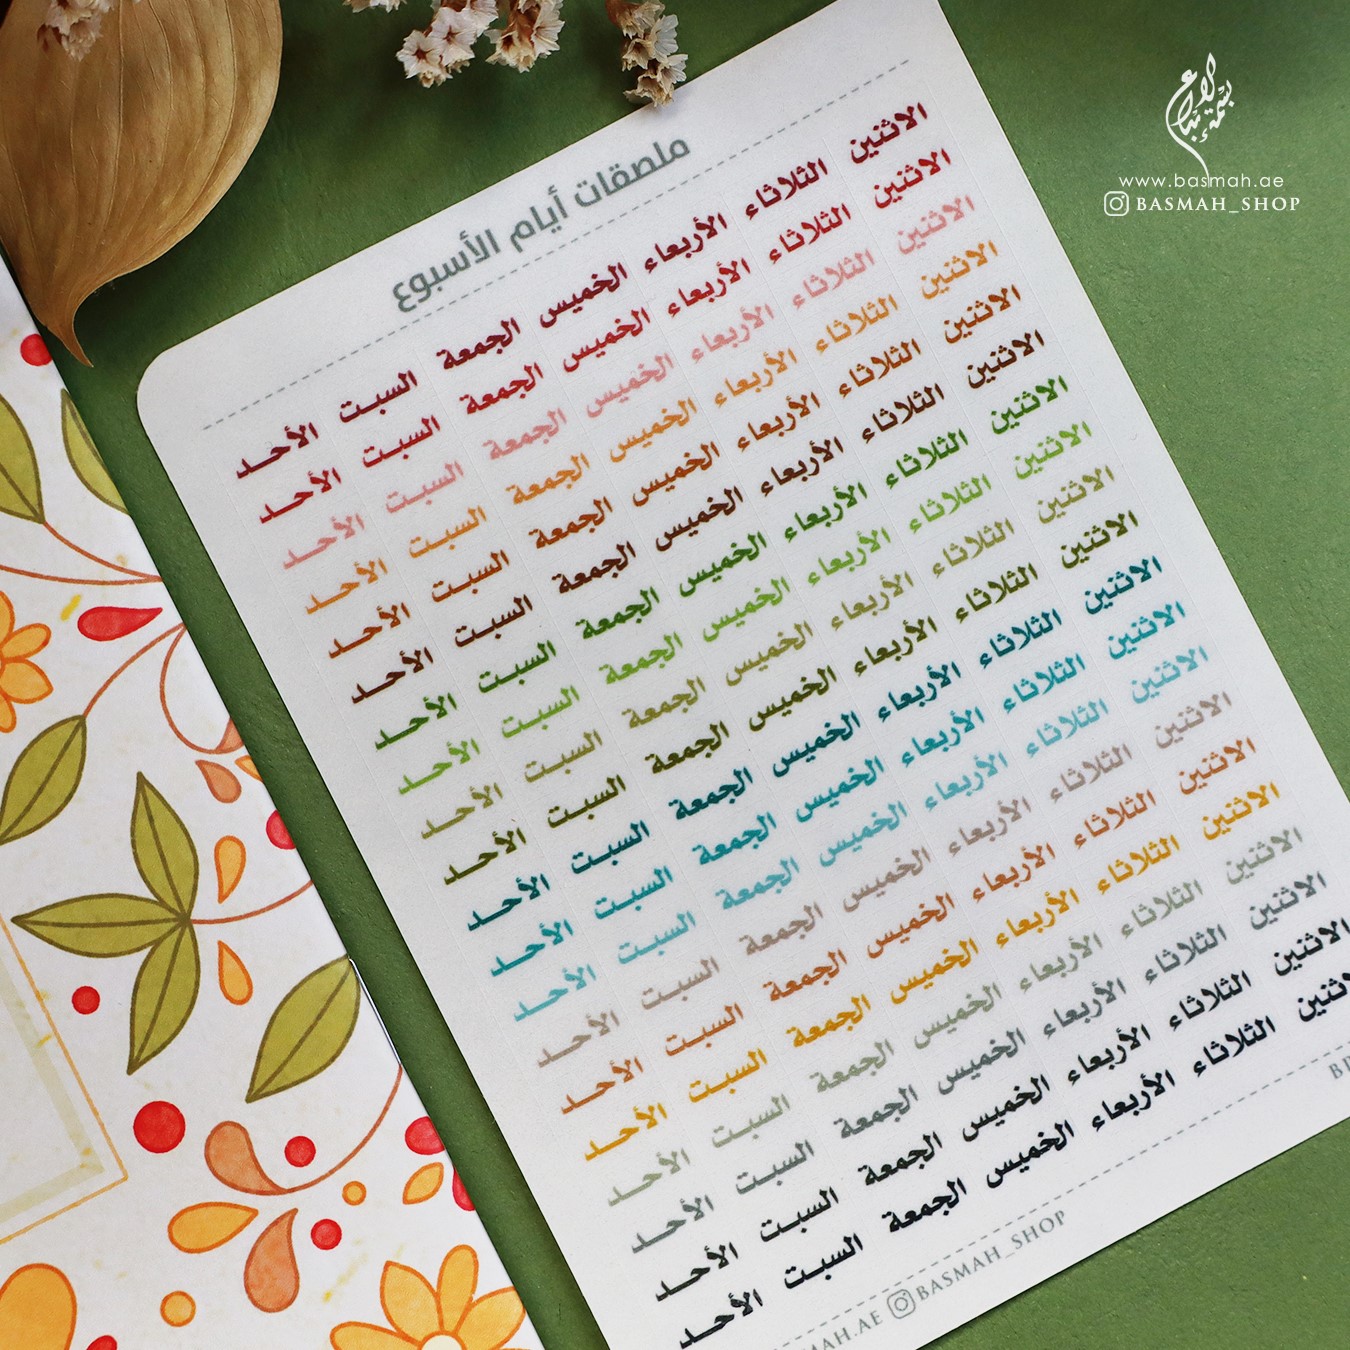 www.basmah.ae
BASMAH_SHOP
ملصقات أيام الأسبوع
الاثنين الثلاثاء الأربعاء الخميس الجمعة السبت الأحد
الاثنين الثلاثاء الأربعاء الخميس الجمعة السبت الأحد
الاثنين الثلاثاء الأربعاء الخميس الجمعة السبت الأحد
الاثنين الثلاثاء الأربعاء الخميس الجمعة السبت الأحد
الاثنين الثلاثاء الأربعاء الخميس الجمعة السبت الأحد
الاثنين الثلاثاء الأربعاء الخميس الجمعة السبت الأحد
الاثنين الثلاثاء الأربعاء الخميس الجمعة السبت الأحد
الاثنين الثلاثاء الأربعاء الخميس الجمعة السبت الأحد
الاثنين الثلاثاء الأربعاء الخميس الجمعة السبت الأحد
الاثنين الثلاثاء الأربعاء الخميس الجمعة السبت الأحد
الاثنين الثلاثاء الأربعاء الخميس الجمعة السبت الأحد
الاثنين الثلاثاء الأربعاء الخميس الجمعة السبت الأحد
الاثنين الثلاثاء الأربعاء الخميس الجمعة السبت الأحد
الاثنين الثلاثاء الأربعاء الخميس الجمعة السبت الأحد
الاثنين الثلاثاء الأربعاء الخميس الجمعة السبت الأحد
الاثنين الثلاثاء الأربعاء الخميس الجمعة السبت الأحد
الاثنين الثلاثاء الأربعاء الخميس الجمعة السبت الأحد
الاثنين الثلاثاء الأربعاء الخميس الجمعة السبت الأحد
الاثنين الثلاثاء الأربعاء الخميس الجمعة السبت الأحد
الثلاثاء الأربعاء الخميس الجمعة السبت الأحد
MAH.AE BASMAH_SHOP